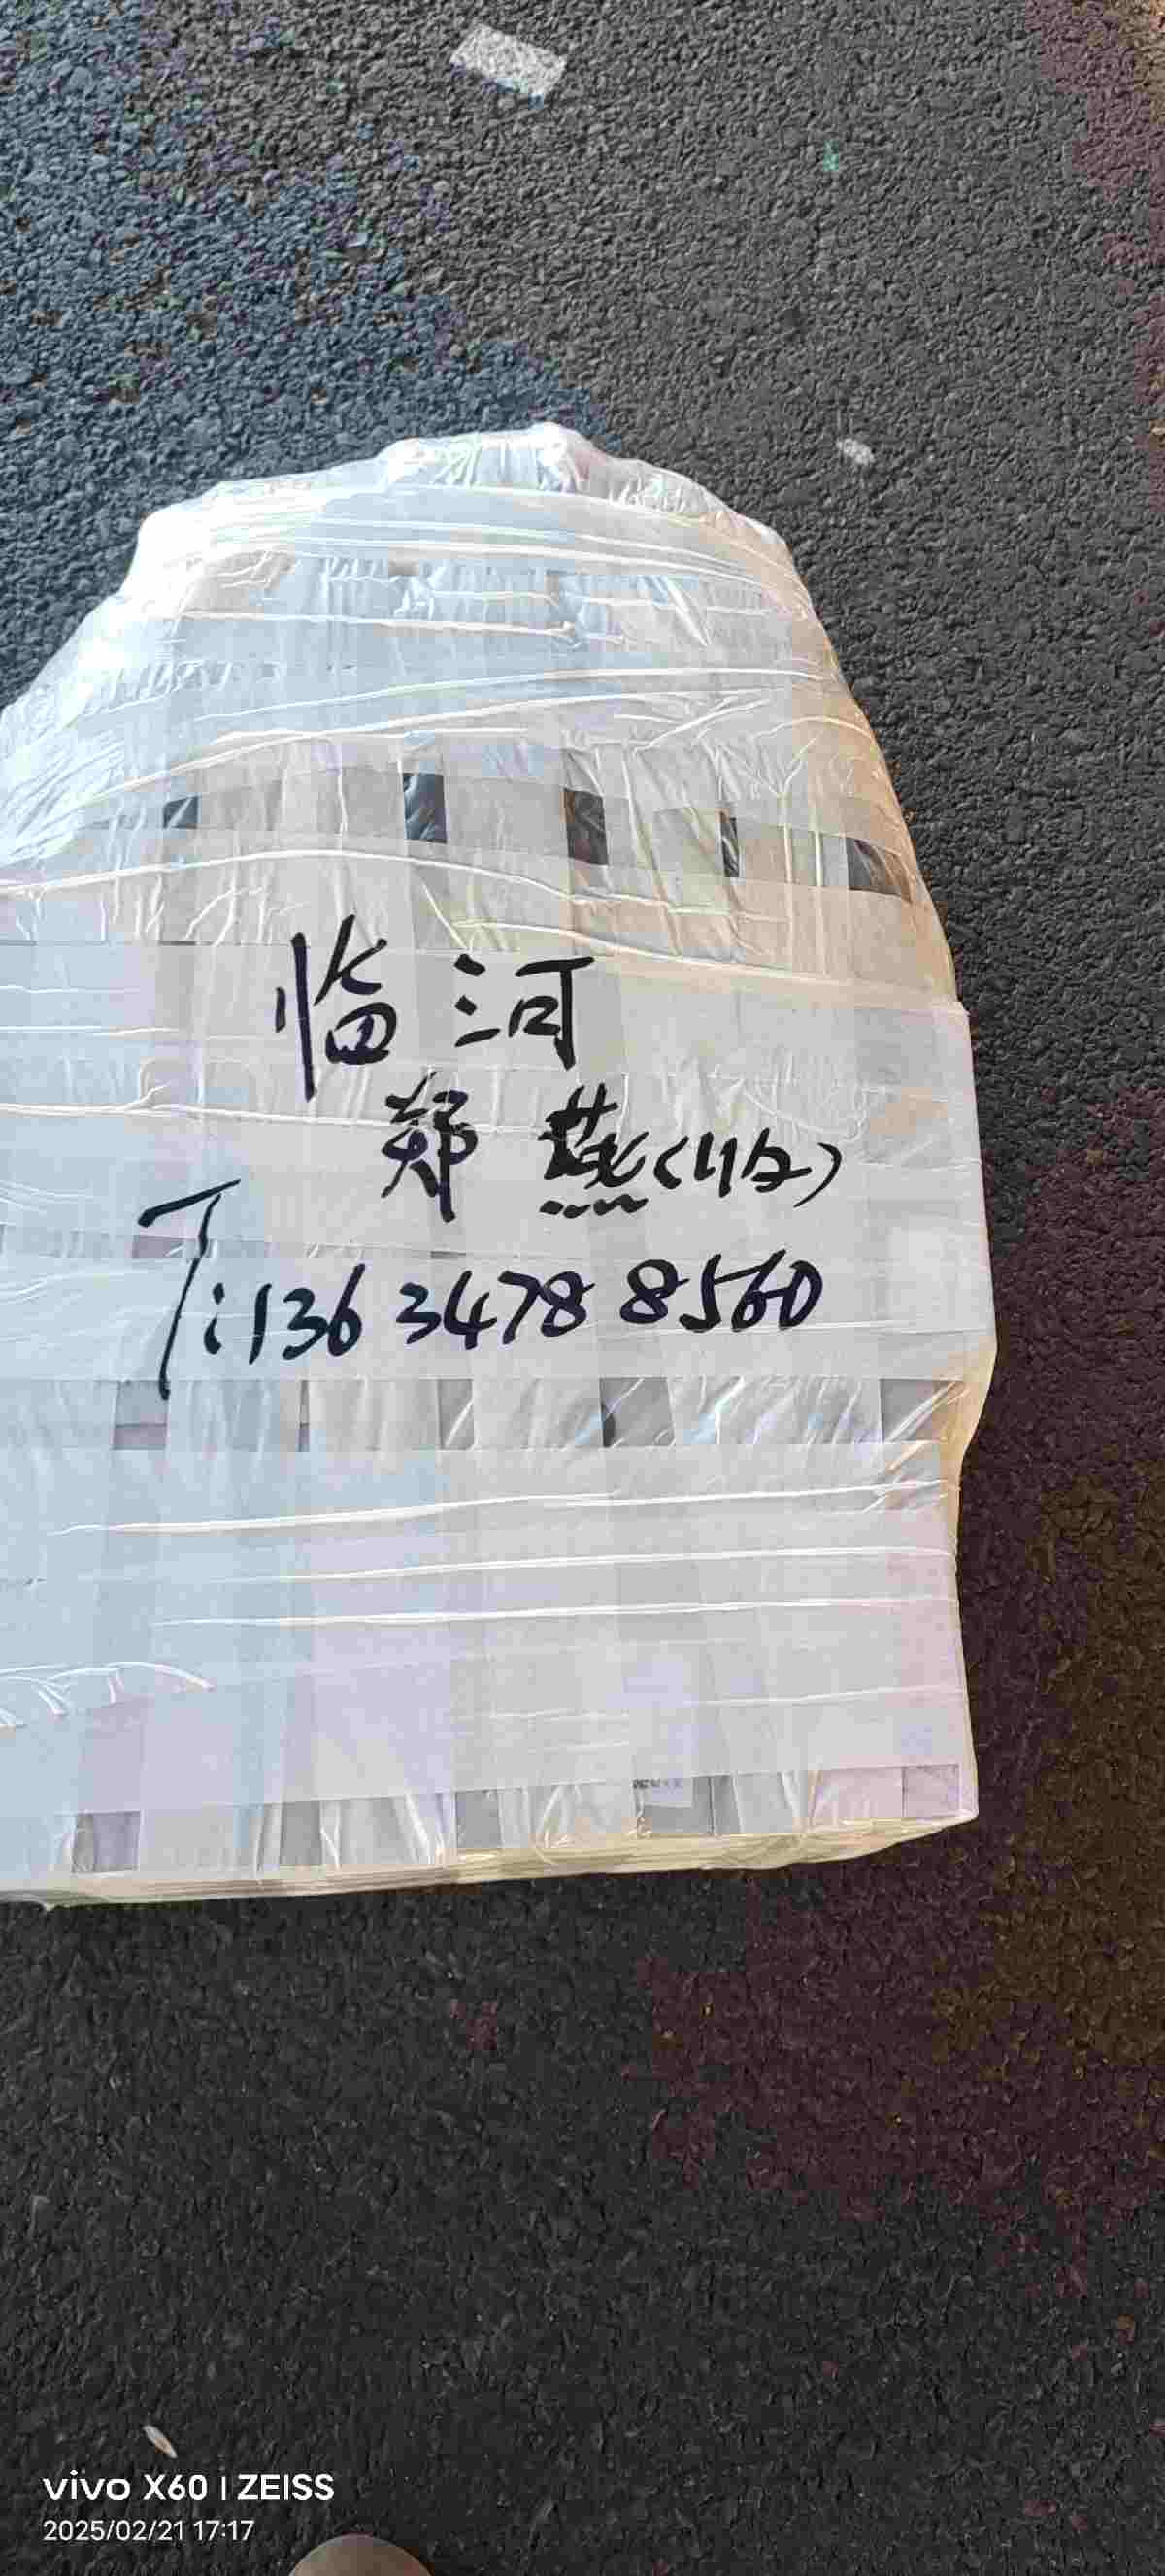 临河
郑燕(收)
T:136 3478 8560
vivo X60 | ZEISS
2025/02/21 17:17